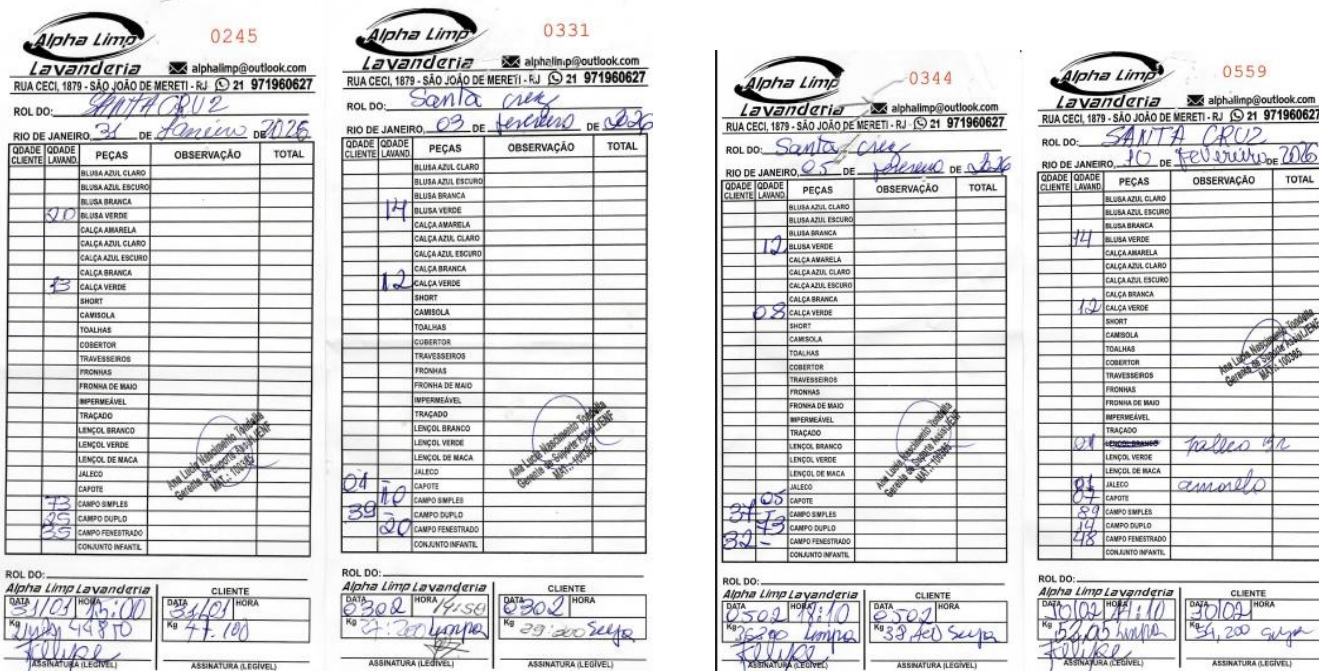 Alpha Limp
0245
Lavanderia alphalimp@outlook.com
RUA CECI, 1879 - SÃO JOÃO DE MERETI - RJ 21 971960627
ROL DO: SANTA CRUZ
RIO DE JANEIRO, 31 DE Janeiro DE 2026
QDADE CLIENTE QDADE LAVAND. PEÇAS OBSERVAÇÃO TOTAL
BLUSA AZUL CLARO
BLUSA AZUL ESCURO
BLUSA BRANCA
20 BLUSA VERDE
CALÇA AMARELA
CALÇA AZUL CLARO
CALÇA AZUL ESCURO
CALÇA BRANCA
13 CALÇA VERDE
SHORT
CAMISOLA
TOALHAS
COBERTOR
TRAVESSEIROS
FRONHAS
FRONHA DE MAIO
IMPERMEÁVEL
TRAÇADO
LENÇOL BRANCO
LENÇOL VERDE
LENÇOL DE MACA
JALECO
CAPOTE
73 CAMPO SIMPLES
25 CAMPO DUPLO
35 CAMPO FENESTRADO
CONJUNTO INFANTIL
Ana Lucia Nascimento Tondella
Gerente de Suporte Assist/ENF
MAT.: 100365
ROL DO:
Alpha Limp Lavanderia CLIENTE
DATA 31/01 HORA 15:00 DATA 31/01 HORA
Kg Kg 47.100
Felipe
ASSINATURA (LEGÍVEL) ASSINATURA (LEGÍVEL)
Alpha Limp
0331
Lavanderia alphalimp@outlook.com
RUA CECI, 1879 - SÃO JOÃO DE MERETI - RJ 21 971960627
ROL DO: Santa cruz
RIO DE JANEIRO, 03 DE fevereiro DE 2026
QDADE CLIENTE QDADE LAVAND. PEÇAS OBSERVAÇÃO TOTAL
BLUSA AZUL CLARO
BLUSA AZUL ESCURO
BLUSA BRANCA
14 BLUSA VERDE
CALÇA AMARELA
CALÇA AZUL CLARO
CALÇA AZUL ESCURO
CALÇA BRANCA
12 CALÇA VERDE
SHORT
CAMISOLA
TOALHAS
COBERTOR
TRAVESSEIROS
FRONHAS
FRONHA DE MAIO
IMPERMEÁVEL
TRAÇADO
LENÇOL BRANCO
LENÇOL VERDE
LENÇOL DE MACA
JALECO
01 - CAPOTE
10 CAMPO SIMPLES
39 - CAMPO DUPLO
20 CAMPO FENESTRADO
CONJUNTO INFANTIL
Ana Lucia Nascimento Tondella
Gerente de Suporte Assist/ENF
MAT.: 100365
ROL DO:
Alpha Limp Lavanderia CLIENTE
DATA 0302 HORA 14:50 DATA 0302 HORA
Kg 27:200 Limpa Kg 29:200 Suja
ASSINATURA (LEGÍVEL) ASSINATURA (LEGÍVEL)
Alpha Limp
0344
Lavanderia alphalimp@outlook.com
RUA CECI, 1879 - SÃO JOÃO DE MERETI - RJ 21 971960627
ROL DO: Santa cruz
RIO DE JANEIRO, 05 DE fevereiro DE 2026
QDADE CLIENTE QDADE LAVAND. PEÇAS OBSERVAÇÃO TOTAL
BLUSA AZUL CLARO
BLUSA AZUL ESCURO
BLUSA BRANCA
12 BLUSA VERDE
CALÇA AMARELA
CALÇA AZUL CLARO
CALÇA AZUL ESCURO
CALÇA BRANCA
08 CALÇA VERDE
SHORT
CAMISOLA
TOALHAS
COBERTOR
TRAVESSEIROS
FRONHAS
FRONHA DE MAIO
IMPERMEÁVEL
TRAÇADO
LENÇOL BRANCO
LENÇOL VERDE
LENÇOL DE MACA
JALECO
05 CAPOTE
37 - CAMPO SIMPLES
73 CAMPO DUPLO
32 - CAMPO FENESTRADO
CONJUNTO INFANTIL
Ana Lucia Nascimento Tondella
Gerente de Suporte Assist/ENF
MAT.: 100365
ROL DO:
Alpha Limp Lavanderia CLIENTE
DATA 0502 HORA 18:10 DATA 0502 HORA
Kg 36200 Limpa Kg 38 Suja
Felipe
ASSINATURA (LEGÍVEL) ASSINATURA (LEGÍVEL)
Alpha Limp
0559
Lavanderia alphalimp@outlook.com
RUA CECI, 1879 - SÃO JOÃO DE MERETI - RJ 21 971960627
ROL DO: SANTA CRUZ
RIO DE JANEIRO, 10 DE Fevereiro DE 2026
QDADE CLIENTE QDADE LAVAND. PEÇAS OBSERVAÇÃO TOTAL
BLUSA AZUL CLARO
BLUSA AZUL ESCURO
BLUSA BRANCA
14 BLUSA VERDE
CALÇA AMARELA
CALÇA AZUL CLARO
CALÇA AZUL ESCURO
CALÇA BRANCA
12 CALÇA VERDE
SHORT
CAMISOLA
TOALHAS
COBERTOR
TRAVESSEIROS
FRONHAS
FRONHA DE MAIO
IMPERMEÁVEL
TRAÇADO
01 LENÇOL BRANCO
LENÇOL VERDE
LENÇOL DE MACA
JALECO amarelo
07 CAPOTE
89 CAMPO SIMPLES
14 CAMPO DUPLO
48 CAMPO FENESTRADO
CONJUNTO INFANTIL
Ana Lucia Nascimento Tondella
Gerente de Suporte Assist/ENF
MAT.: 100365
ROL DO:
Alpha Limp Lavanderia CLIENTE
DATA 10/02 HORA DATA 10/02 HORA
Kg Limpa Kg 54,200 suja
Felipe
ASSINATURA (LEGÍVEL) ASSINATURA (LEGÍVEL)